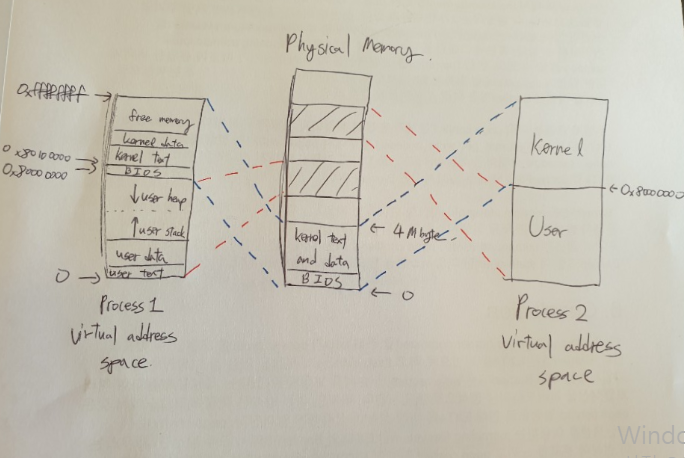 Physical Memory.
0xffffffff
free memory
kernel data
kernel text
0x80100000
0x80000000
BIOS
↓ user heap
↑ user stack
user data
user text
0
Process 1
virtual address
space.
kernel text
and data
BIOS
← 4 Mbyte
← 0
Kernel
User
← 0x80000000
Process 2
virtual address
space
Windo